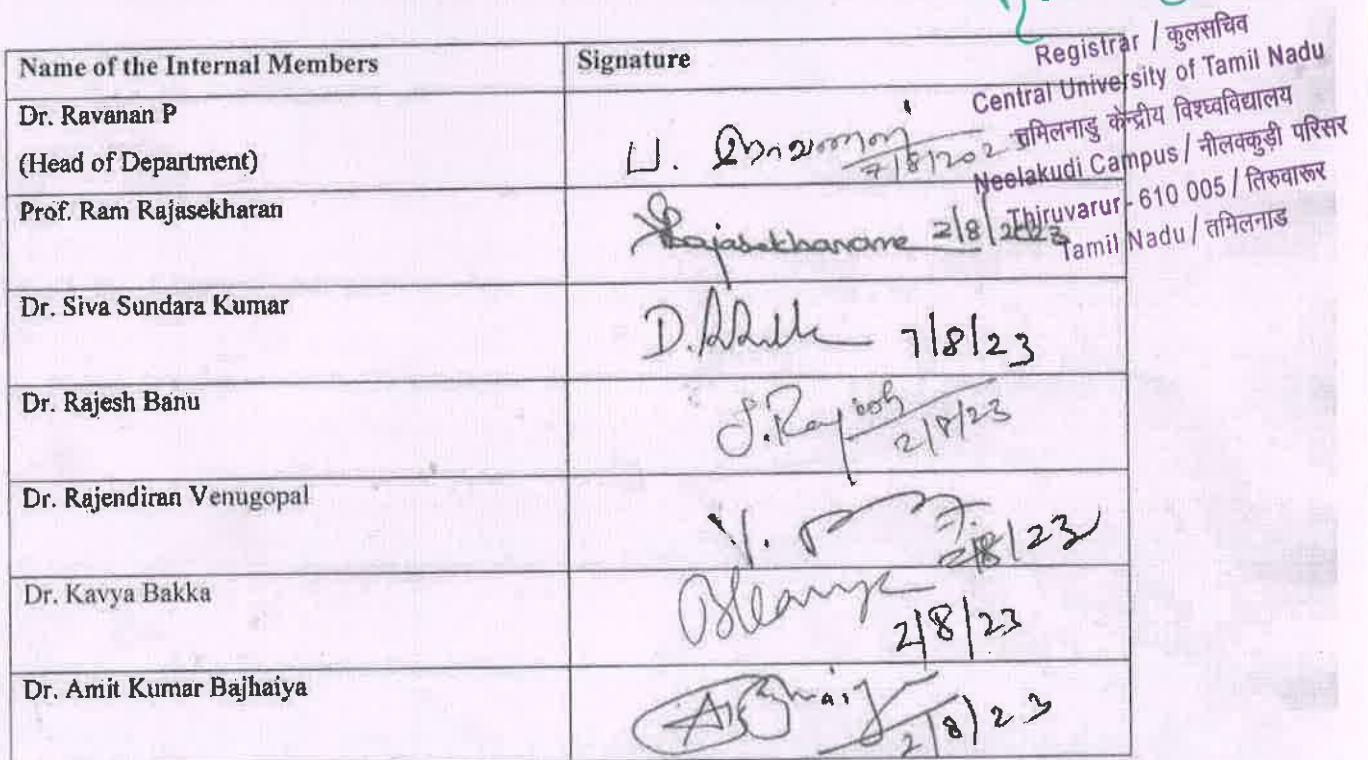 Registrar / कुलसचिव
Central University of Tamil Nadu
तमिलनाडु केन्द्रीय विश्वविद्यालय
Neelakudi Campus / नीलक्कुड़ी परिसर
Thiruvarur - 610 005 / तिरुवारूर
Tamil Nadu / तमिलनाड
Name of the Internal Members Signature
Dr. Ravanan P
(Head of Department)
Prof. Ram Rajasekharan
Rajasekharan 2/8/2023
Dr. Siva Sundara Kumar
7/8/23
Dr. Rajesh Banu
2/8/23
Dr. Rajendiran Venugopal
2/8/23
Dr. Kavya Bakka
2/8/23
Dr. Amit Kumar Bajhaiya
2/8/23